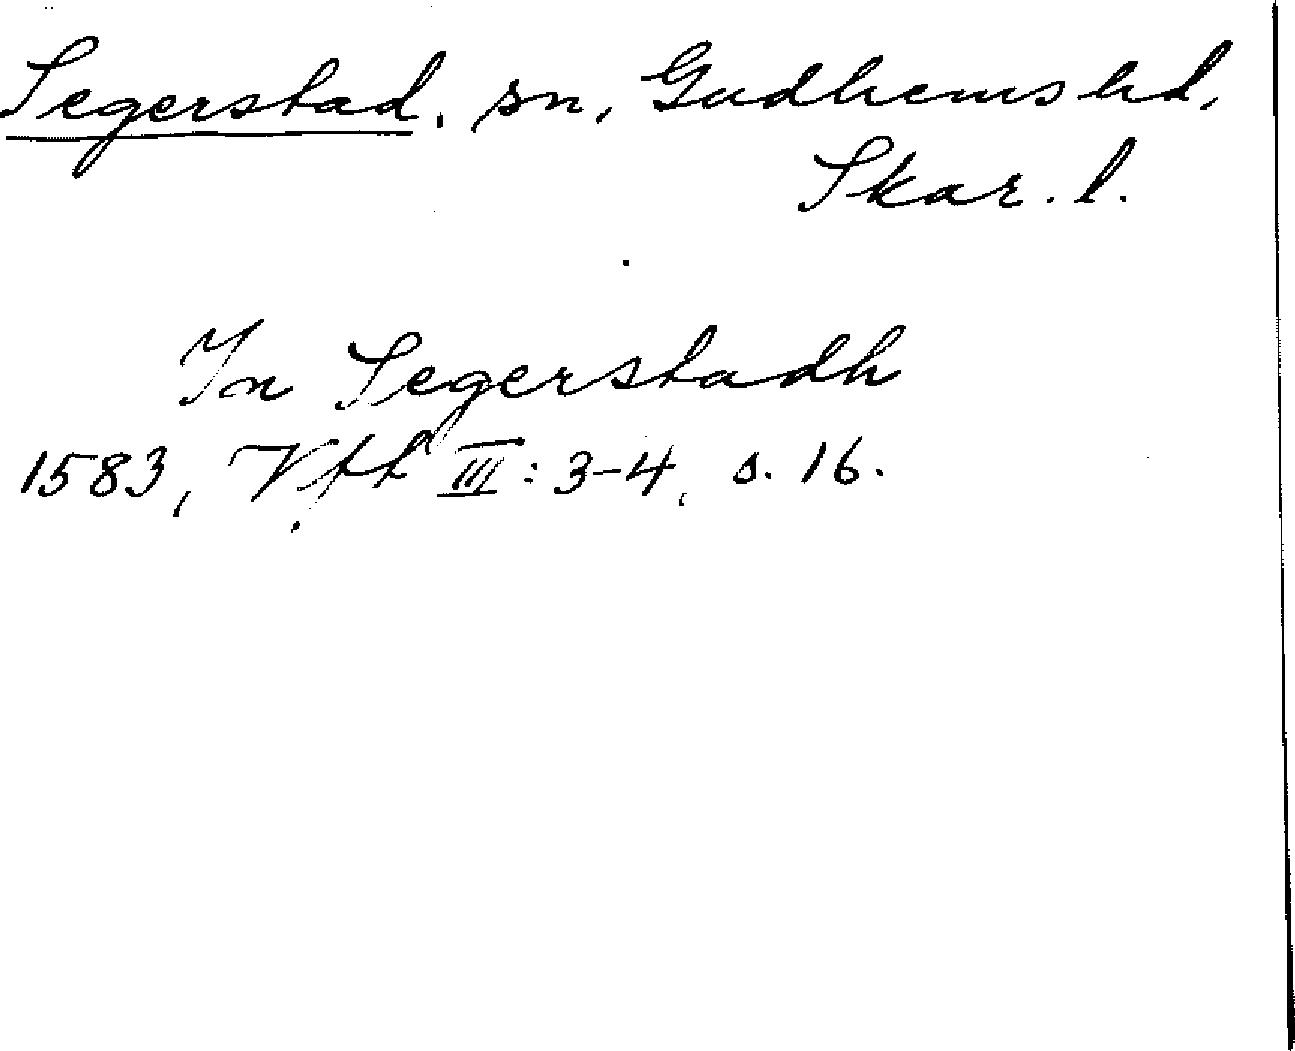 Segerstad, sn, Gudhems hd,
Skar. l.
In Segerstadh
1583, Vft III: 3-4, s. 16.